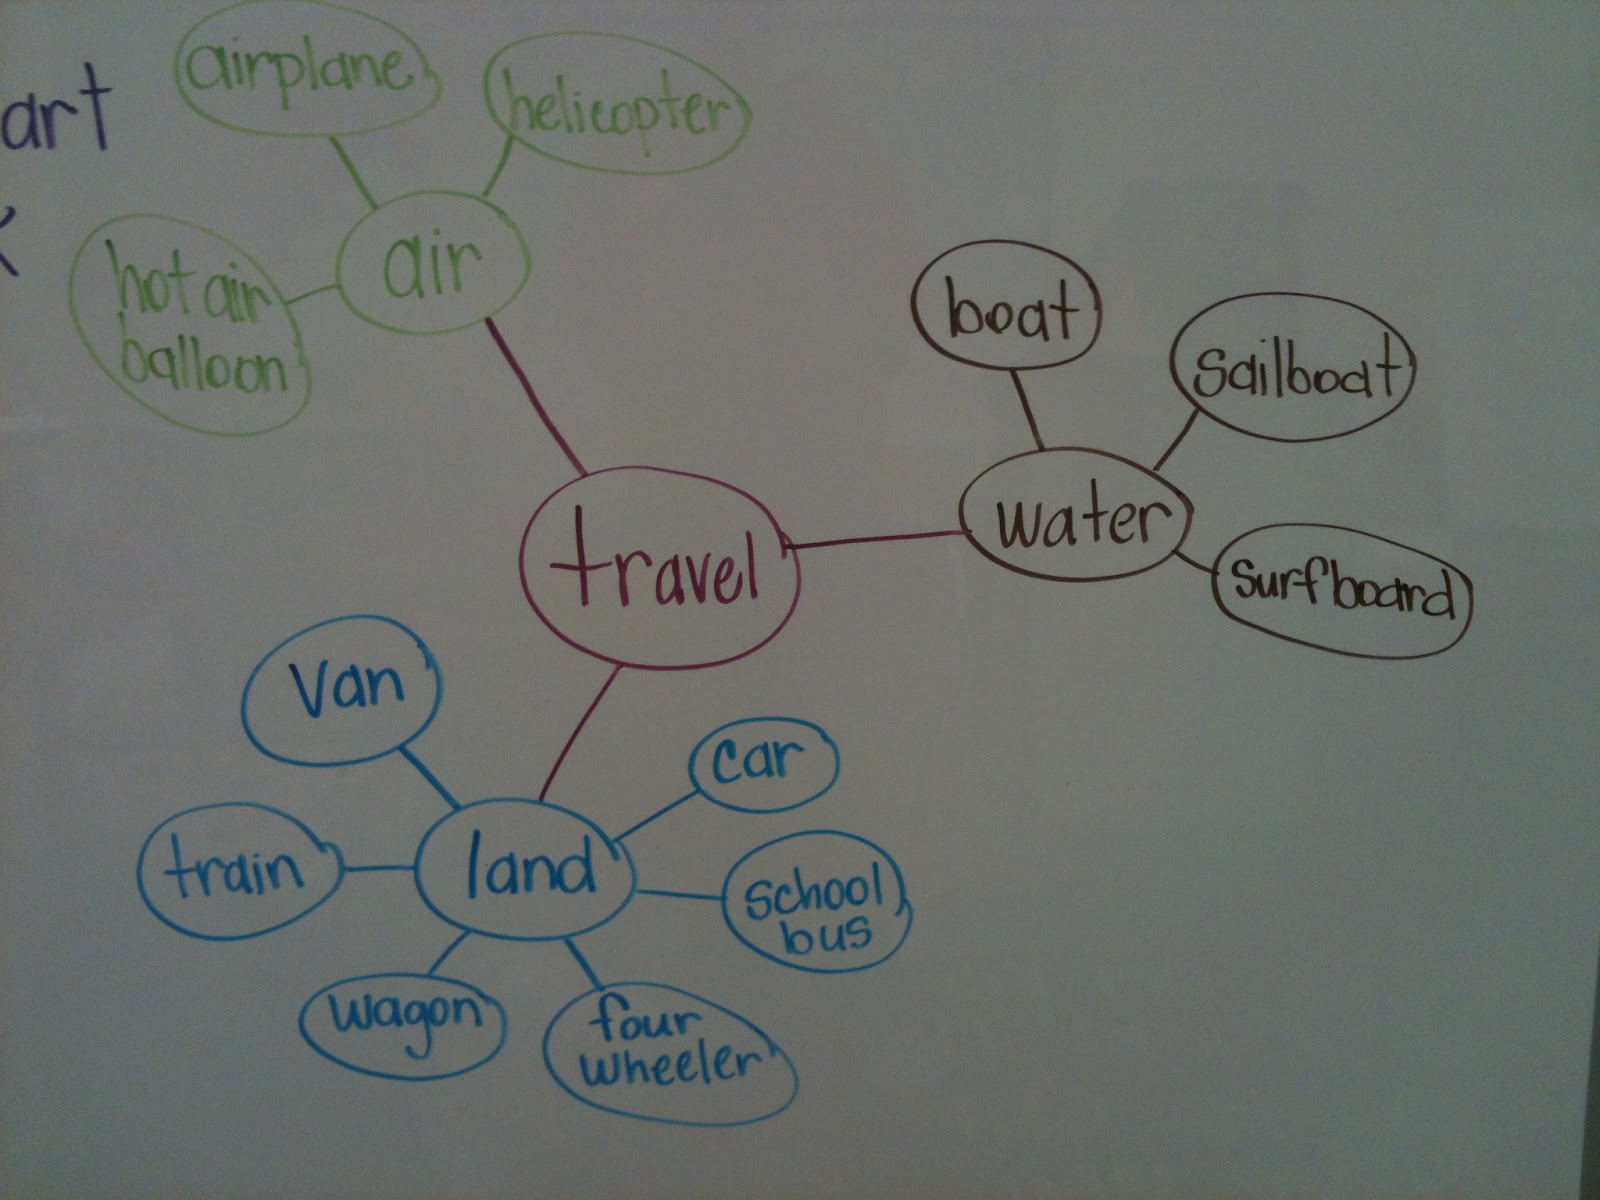 art
airplane
helicopter
hot air
balloon
air
boat
sailboat
water
surfboard
travel
Van
car
train
land
school
bus
wagon
four
wheeler